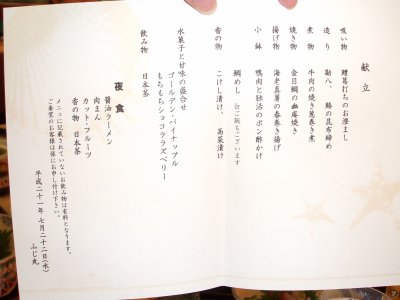 献立
吸い物 鱧葛打ちのお澄まし
造り 勘八、鰆の昆布締め
煮物 牛肉の焼き葱巻き煮
焼き物 金目鯛の幽庵焼き
揚げ物 海老真薯の春巻き揚げ
小鉢 鴨肉と独活のポン酢かけ
鯛めし 白ご飯もございます
香の物 こけし漬け、高菜漬け
水菓子と甘味の盛合せ
ゴールデン・パイナップル
もちもちショコラズベリー
飲み物 日本茶
夜食
醤油ラーメン
肉まん
カット・フルーツ
香の物 日本茶
メニューに記載されていないお飲み物は有料となります。
ご希望のお客様は係にお申し付け下さい。
平成二十一年七月二十二日(水)
ふじ丸